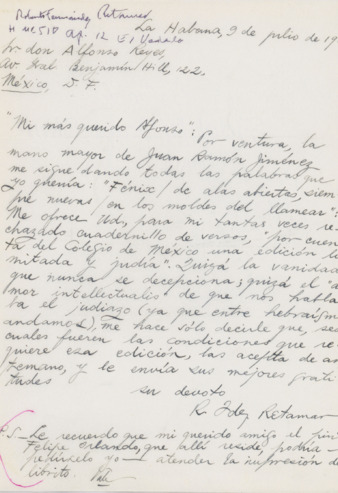 Roberto Fernández Retamar
H nº 510 ap. 12 Vedado
La Habana, 9 de julio de 19
Sr. don Alfonso Reyes,
Av. Gral Benjamín Hill, 122.
México, D. F.
"Mi más querido Alfonso": Por ventura, la
mano mayor de Juan Ramón Jiménez
me sigue dando todas las palabras que
yo quería: "Fénix/ de alas abiertas, siem
pre nuevas/ en los moldes del llamear":
Me ofrece Ud, para mi tantas veces re
chazado cuadernillo de versos, "por cuen
ta del Colegio de México una edición li
mitada y judía". Quizá la vanidad
que nunca se decepciona; quizá el "a
mor intellectualis" de que nos habla
ba el judiazo (ya que entre hebraísm
andamos), me hace sólo decirle que, sea
cuales fueren las condiciones que re
quiere esa edición, las acepta de an
temano, y le envía sus mejores grati
tudes
su devoto
R. Fdez Retamar
P.S.- Le recuerdo que mi querido amigo el pin
Felipe Orlando, que allí reside, podría -
pedírselo yo - atender la impresión de
librito. Vale